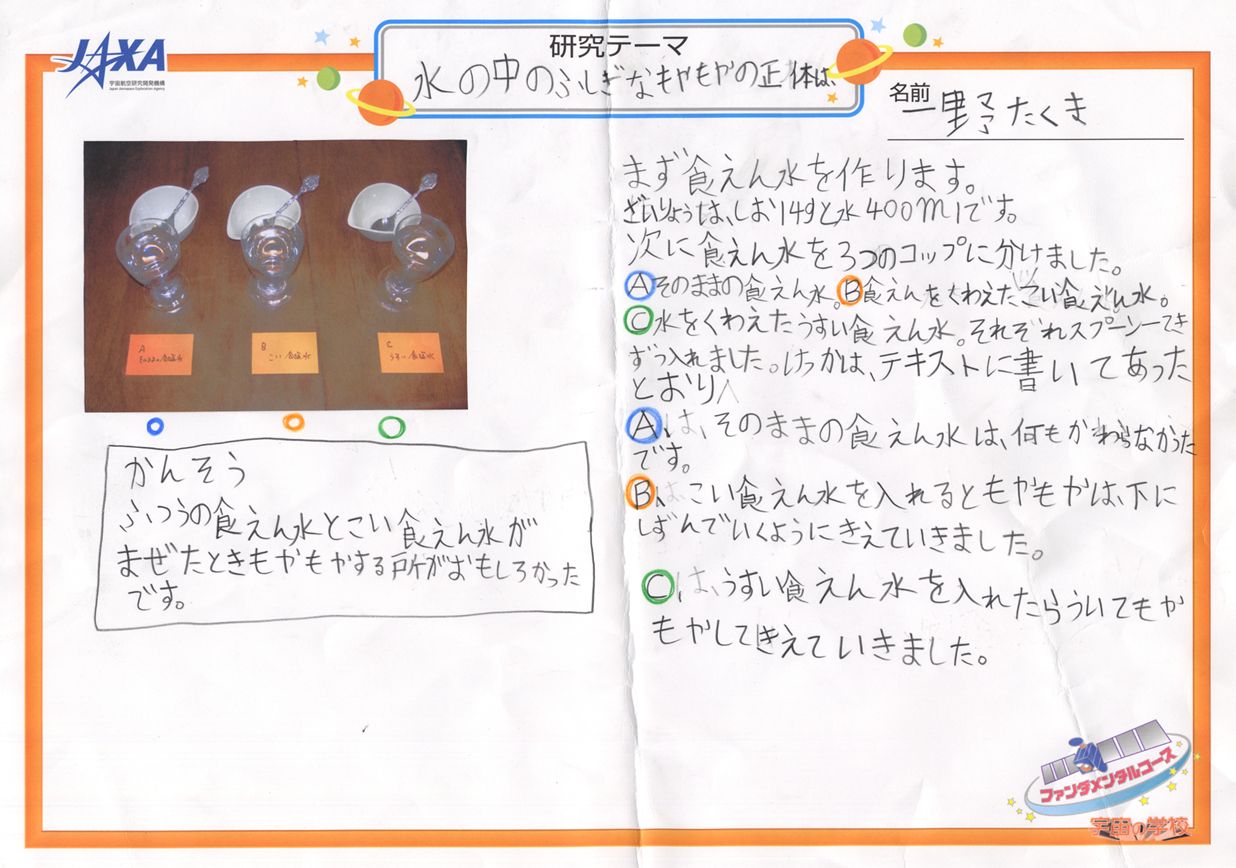 JAXA
宇宙航空研究開発機構
Japan Aerospace Exploration Agency
研究テーマ
水の中のふしぎなもやもやの正体は、
名前
一野たくま
A
そのままの食塩水
B
こい食塩水
C
うすい食塩水
かんそう
ふつうの食えん水とこい食えん水が
まぜたときもやもやする所がおもしろかった
です。
まず食えん水を作ります。
ざいりょうは、しお14gと水400mlです。
次に食えん水を3つのコップに分けました。
Aそのままの食えん水。B食えんをくわえたこい食えん水。
C水をくわえたうすい食えん水。それぞれスプーン一てき
ずつ入れました。けっかは、テキストに書いてあった
とおり
Aは、そのままの食えん水は、何もかわらなかった
です。
Bは、こい食えん水を入れるともやもやは、下に
しずんでいくようにきえていきました。
Cは、うすい食えん水を入れたらういてもや
もやしてきえていきました。
ファンダメンタルコース
宇宙の学校